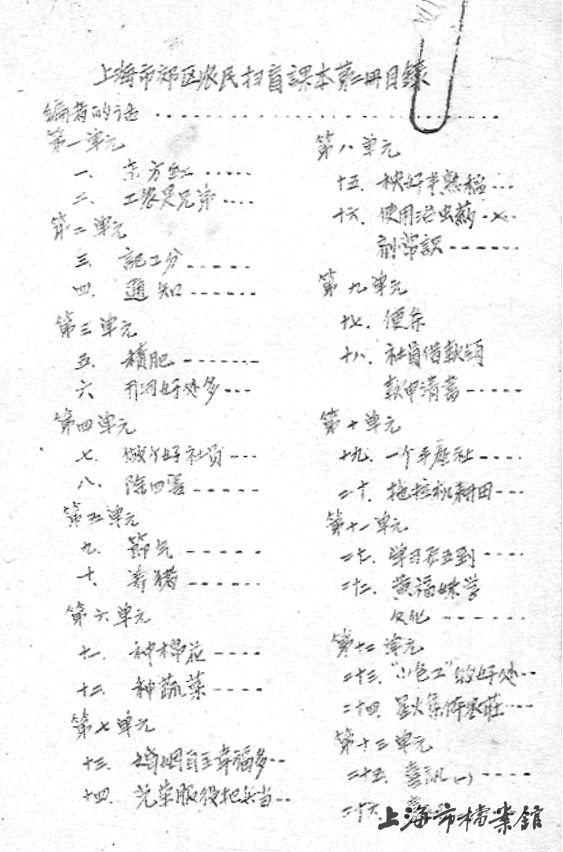 上海市郊区农民扫盲課本第二冊目錄
编者的话
第一单元
一. 东方红
二. 工农是兄弟
第二单元
三. 記工分
四. 通知
第三单元
五. 積肥
六. 开河好处多
第四单元
七. 做个好社员
八. 除四害
第五单元
九. 節气
十. 养猪
第六单元
十一. 种棉花
十二. 种蔬菜
第七单元
十三. 婚姻自主幸福多
十四. 光荣服役把兵当
第八单元
十五. 秧好半熟稻
十六. 使用治虫药
剂常識
第九单元
十七. 便条
十八. 社員借款領
款申請書
第十单元
十九. 一个手
社
二十. 拖拉机耕田
第十一单元
二十一. 学习要五到
二十二. 黄福妹学
文化
第十二单元
二十三. “小包工”的好处
二十四. 星火集体农莊
第十三单元
二十五. 喜訊(一)
二十六. 喜
上海市檔案館